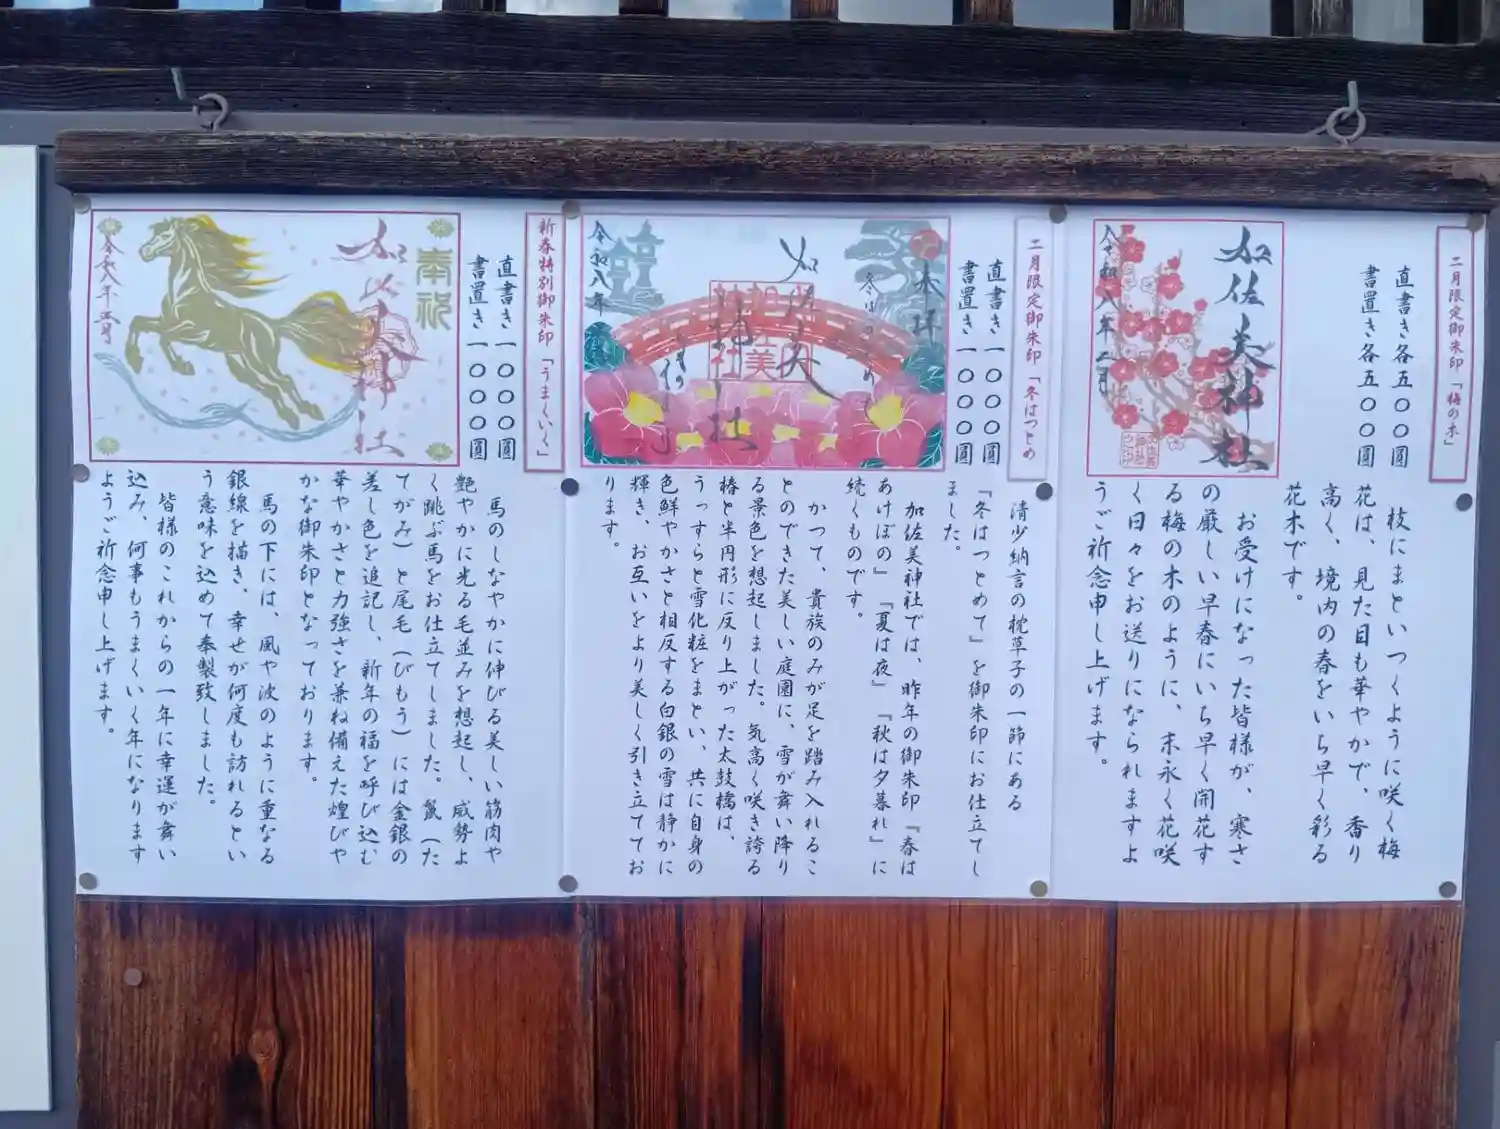 二月限定御朱印「梅の木」
直書き各五〇〇圓
書置き各五〇〇圓
加佐美神社
令和八年二月
枝にまといつくように咲く梅
花は、見た目も華やかで、香り
高く、境内の春をいち早く彩る
花木です。
お受けになった皆様が、寒さ
の厳しい早春にいち早く開花す
る梅の木のように、末永く花咲
く日々をお送りになられますよ
うご祈念申し上げます。
二月限定御朱印「冬はつとめ
直書き一〇〇〇圓
書置き一〇〇〇圓
奉拝
冬は
加佐美
神社
令和八年
清少納言の枕草子の一節にある
『冬はつとめて』を御朱印にお仕立てし
ました。
加佐美神社では、昨年の御朱印『春は
あけぼの』『夏は夜』『秋は夕暮れ』に
続くものです。
かつて、貴族のみが足を踏み入れるこ
とのできた美しい庭園に、雪が舞い降り
る景色を想起しました。気高く咲き誇る
椿と半円形に反り上がった太鼓橋は、
うっすらと雪化粧をまとい、共に自身の
色鮮やかさと相反する白銀の雪は静かに
輝き、お互いをより美しく引き立ててお
ります。
新春特別御朱印「うまくいく」
直書き一〇〇〇圓
書置き一〇〇〇圓
奉祝
加佐美神社
令和八年正月
馬のしなやかに伸びる美しい筋肉や
艶やかに光る毛並みを想起し、威勢よ
く跳ぶ馬をお仕立てしました。鬣（た
てがみ）と尾毛（びもう）には金銀の
差し色を追記し、新年の福を呼び込む
華やかさと力強さを兼ね備えた煌びや
かな御朱印となっております。
馬の下には、風や波のように重なる
銀線を描き、幸せが何度も訪れるとい
う意味を込めて奉製致しました。
皆様のこれからの一年に幸運が舞い
込み、何事もうまくいく年になります
ようご祈念申し上げます。